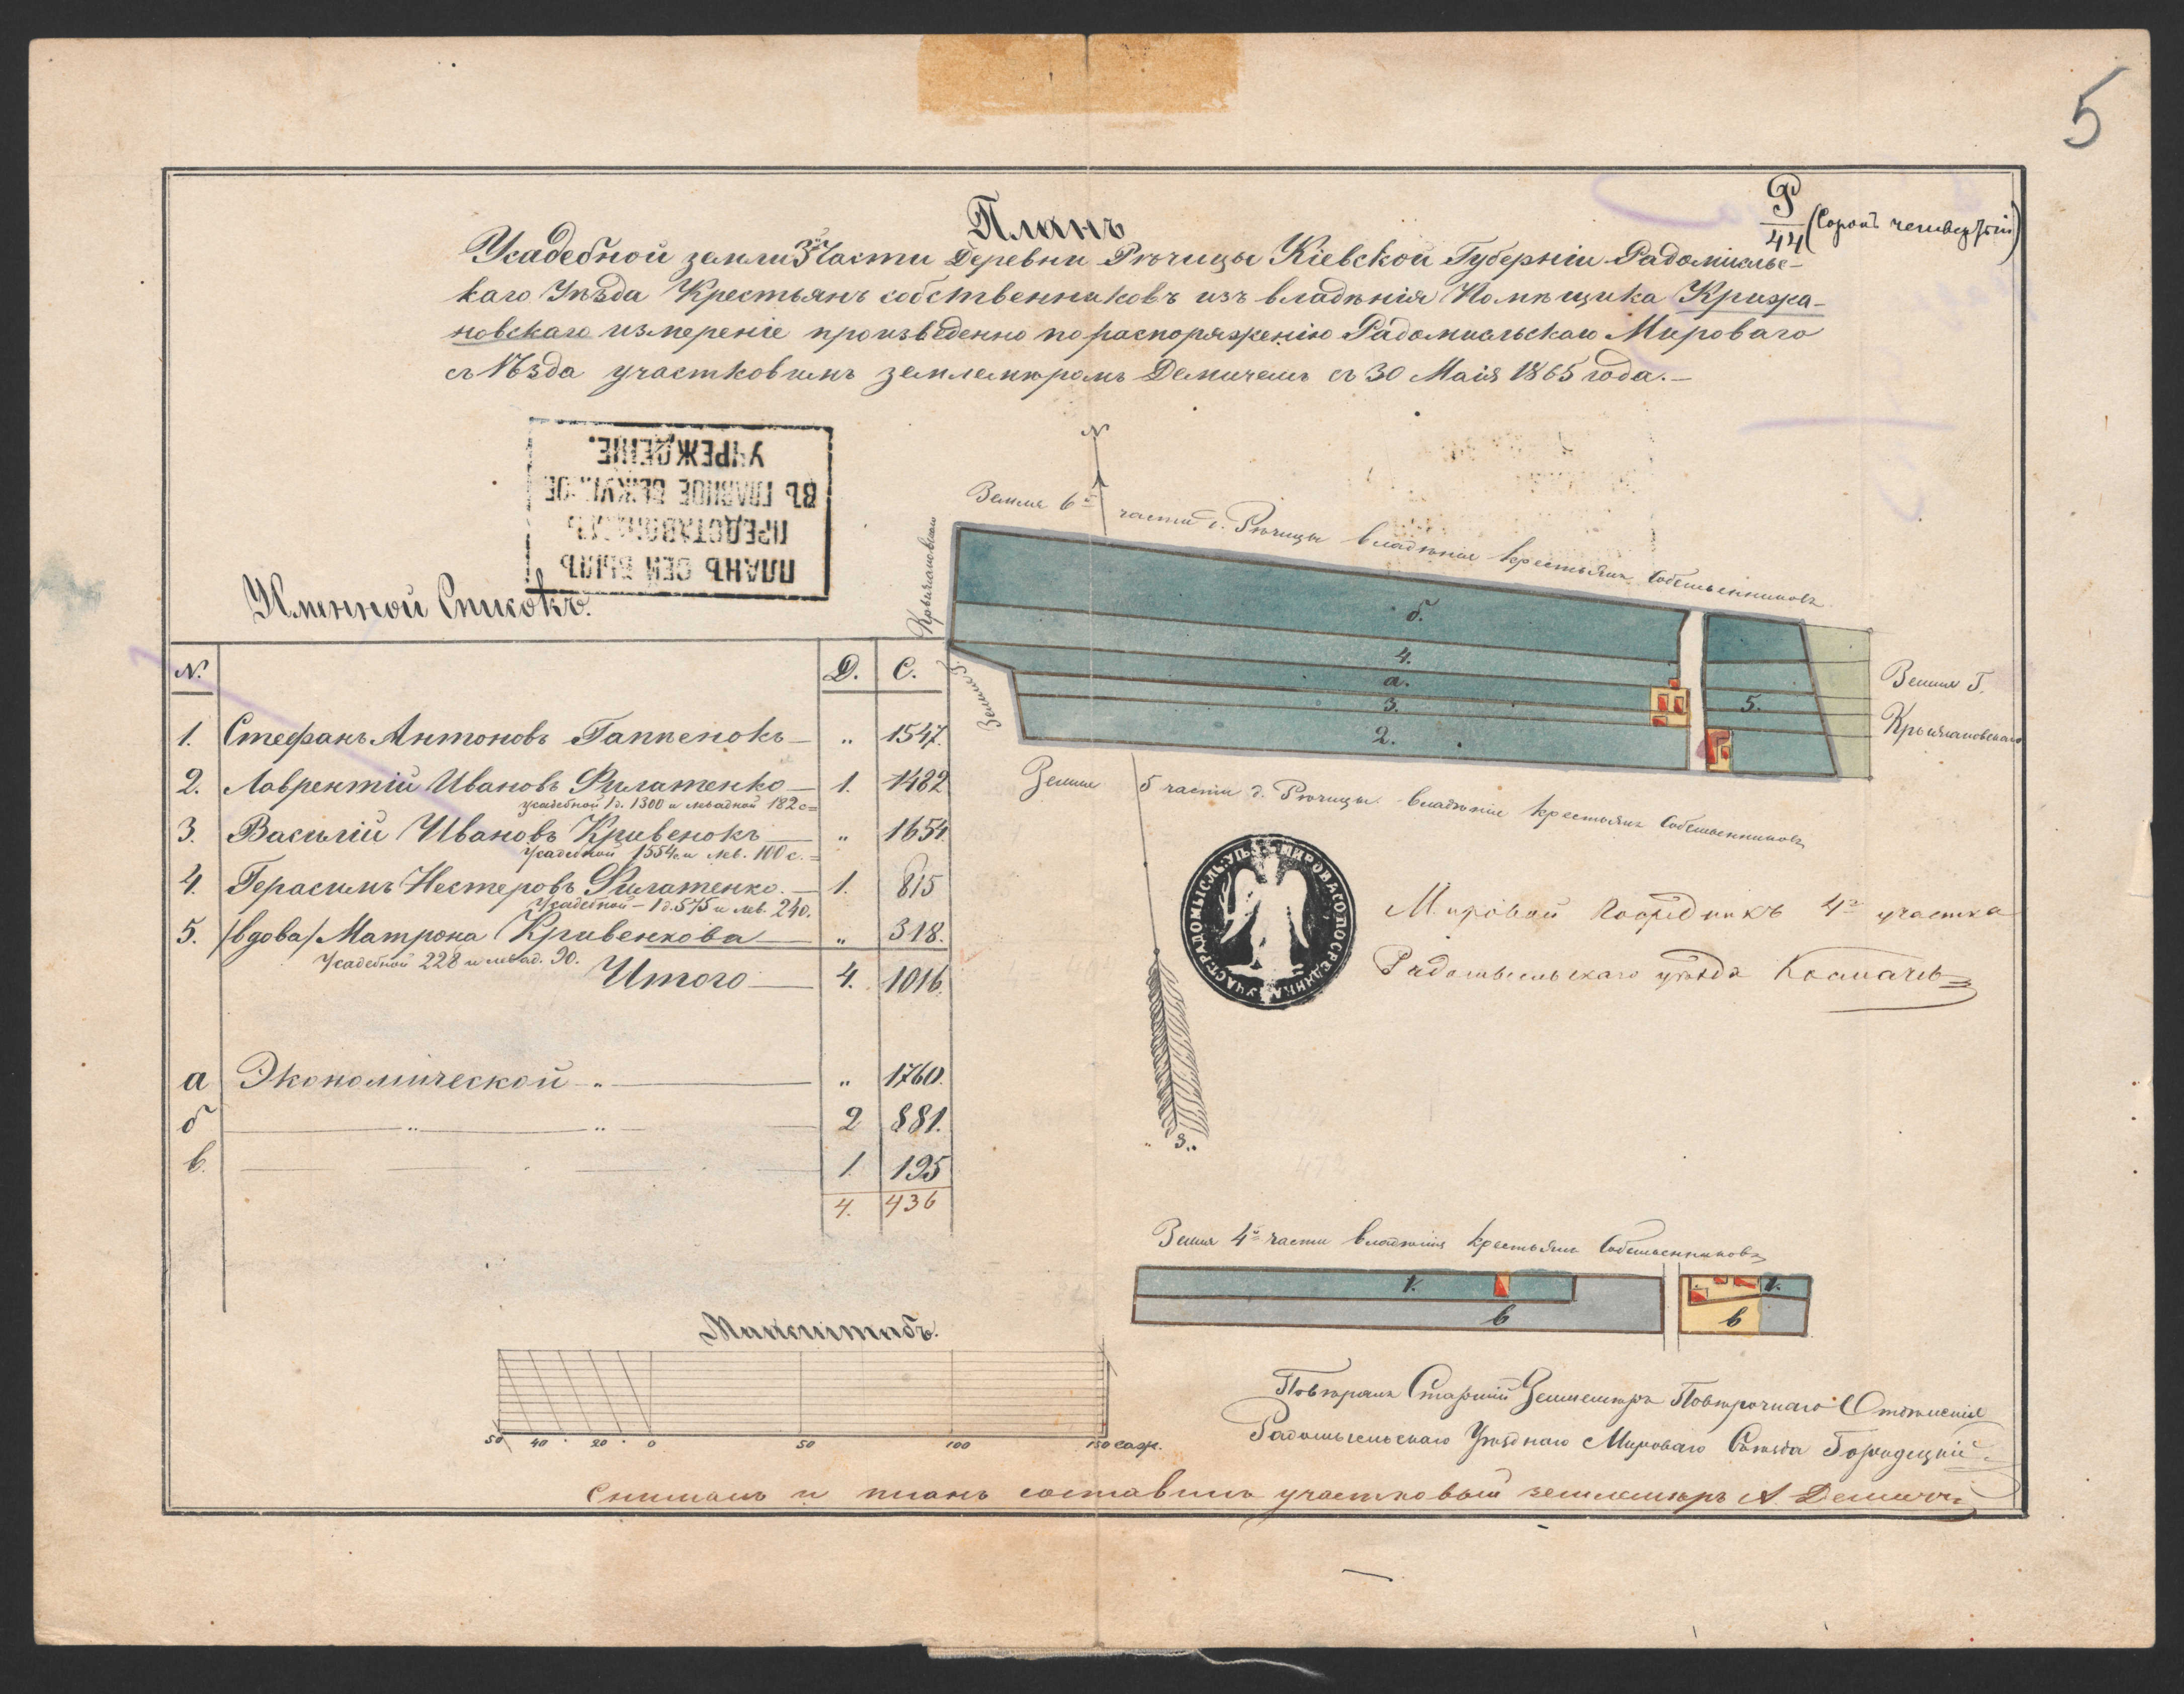 5
Р/44 (Сорокъ четвертый)
Планъ
Усадебной земли 3й Части Деревни Рѣчицы Кіевской Губерніи Радомисльс-
каго Уѣзда Крестьянъ собственниковъ изъ владѣнія Помѣщика Крижа-
новскаго измереніе произведенно по распоряженію Радомисльскаго Мироваго
съѣзда участковимъ землемѣромъ Демичемъ съ 30 Маія 1865 года.—
ПЛАНЪ СЕЙ БЫЛЪ
ПРЕДСТАВЛЕНЪ
ВЪ ГЛАВНОЕ ВЫКУПНОЕ
УЧРЕЖДЕНІЕ.
Именной Списокъ.
N. Д. С.
1. Стефанъ Антоновъ Гаппенокъ — „ 1547.
2. Лаврентій Ивановъ Филатенко — 1. 1482
усадебной 1 д. 1300 и левадной 182 с=
3. Василій Ивановъ Кривенокъ — „ 1654.
Усадебной 1554 и лев. 100 с.=
4. Герасимъ Нестеровъ Филатенко. — 1. 815
Усадебной — 1 д. 575 и лев. 240.
5. /вдова/ Матрона Кривенкова — „ 318.
Усадебной 228 и левад. 90.
Итого — 4. 1016.
а Экономической „ — „ 1760.
б — „ — „ — 2 881.
в. — 1. 195
4. 436
N
Земля 6й части д. Рѣчицы владѣнія крестьянъ Собственниковъ
Земля Г.
Крыжановскаго
б.
4.
а.
3.
2.
5.
Земля Г.
Крыжановскаго
Земля 5 части д. Рѣчицы владѣнія крестьянъ Собственниковъ
МИРОВАГО ПОСРЕДНИКА УЧАСТ. РАДОМЫСЛЬ. УѢЗ.
Мировой Посредникъ 4го участка
Радомысльскаго уѣзда Космачевъ
„ З. „
Земля 4й части владѣнія крестьянъ Собственниковъ
1.
в
1.
в
Масштабъ.
50 40 20 0 50 100 150 саж.
Повѣрялъ Старшій Землемѣръ Повѣрочнаго Отдѣленія
Радомысльскаго Уѣзднаго Мироваго Съѣзда Городецкій
Снималъ и планъ составилъ участковый землемѣръ А Демичъ